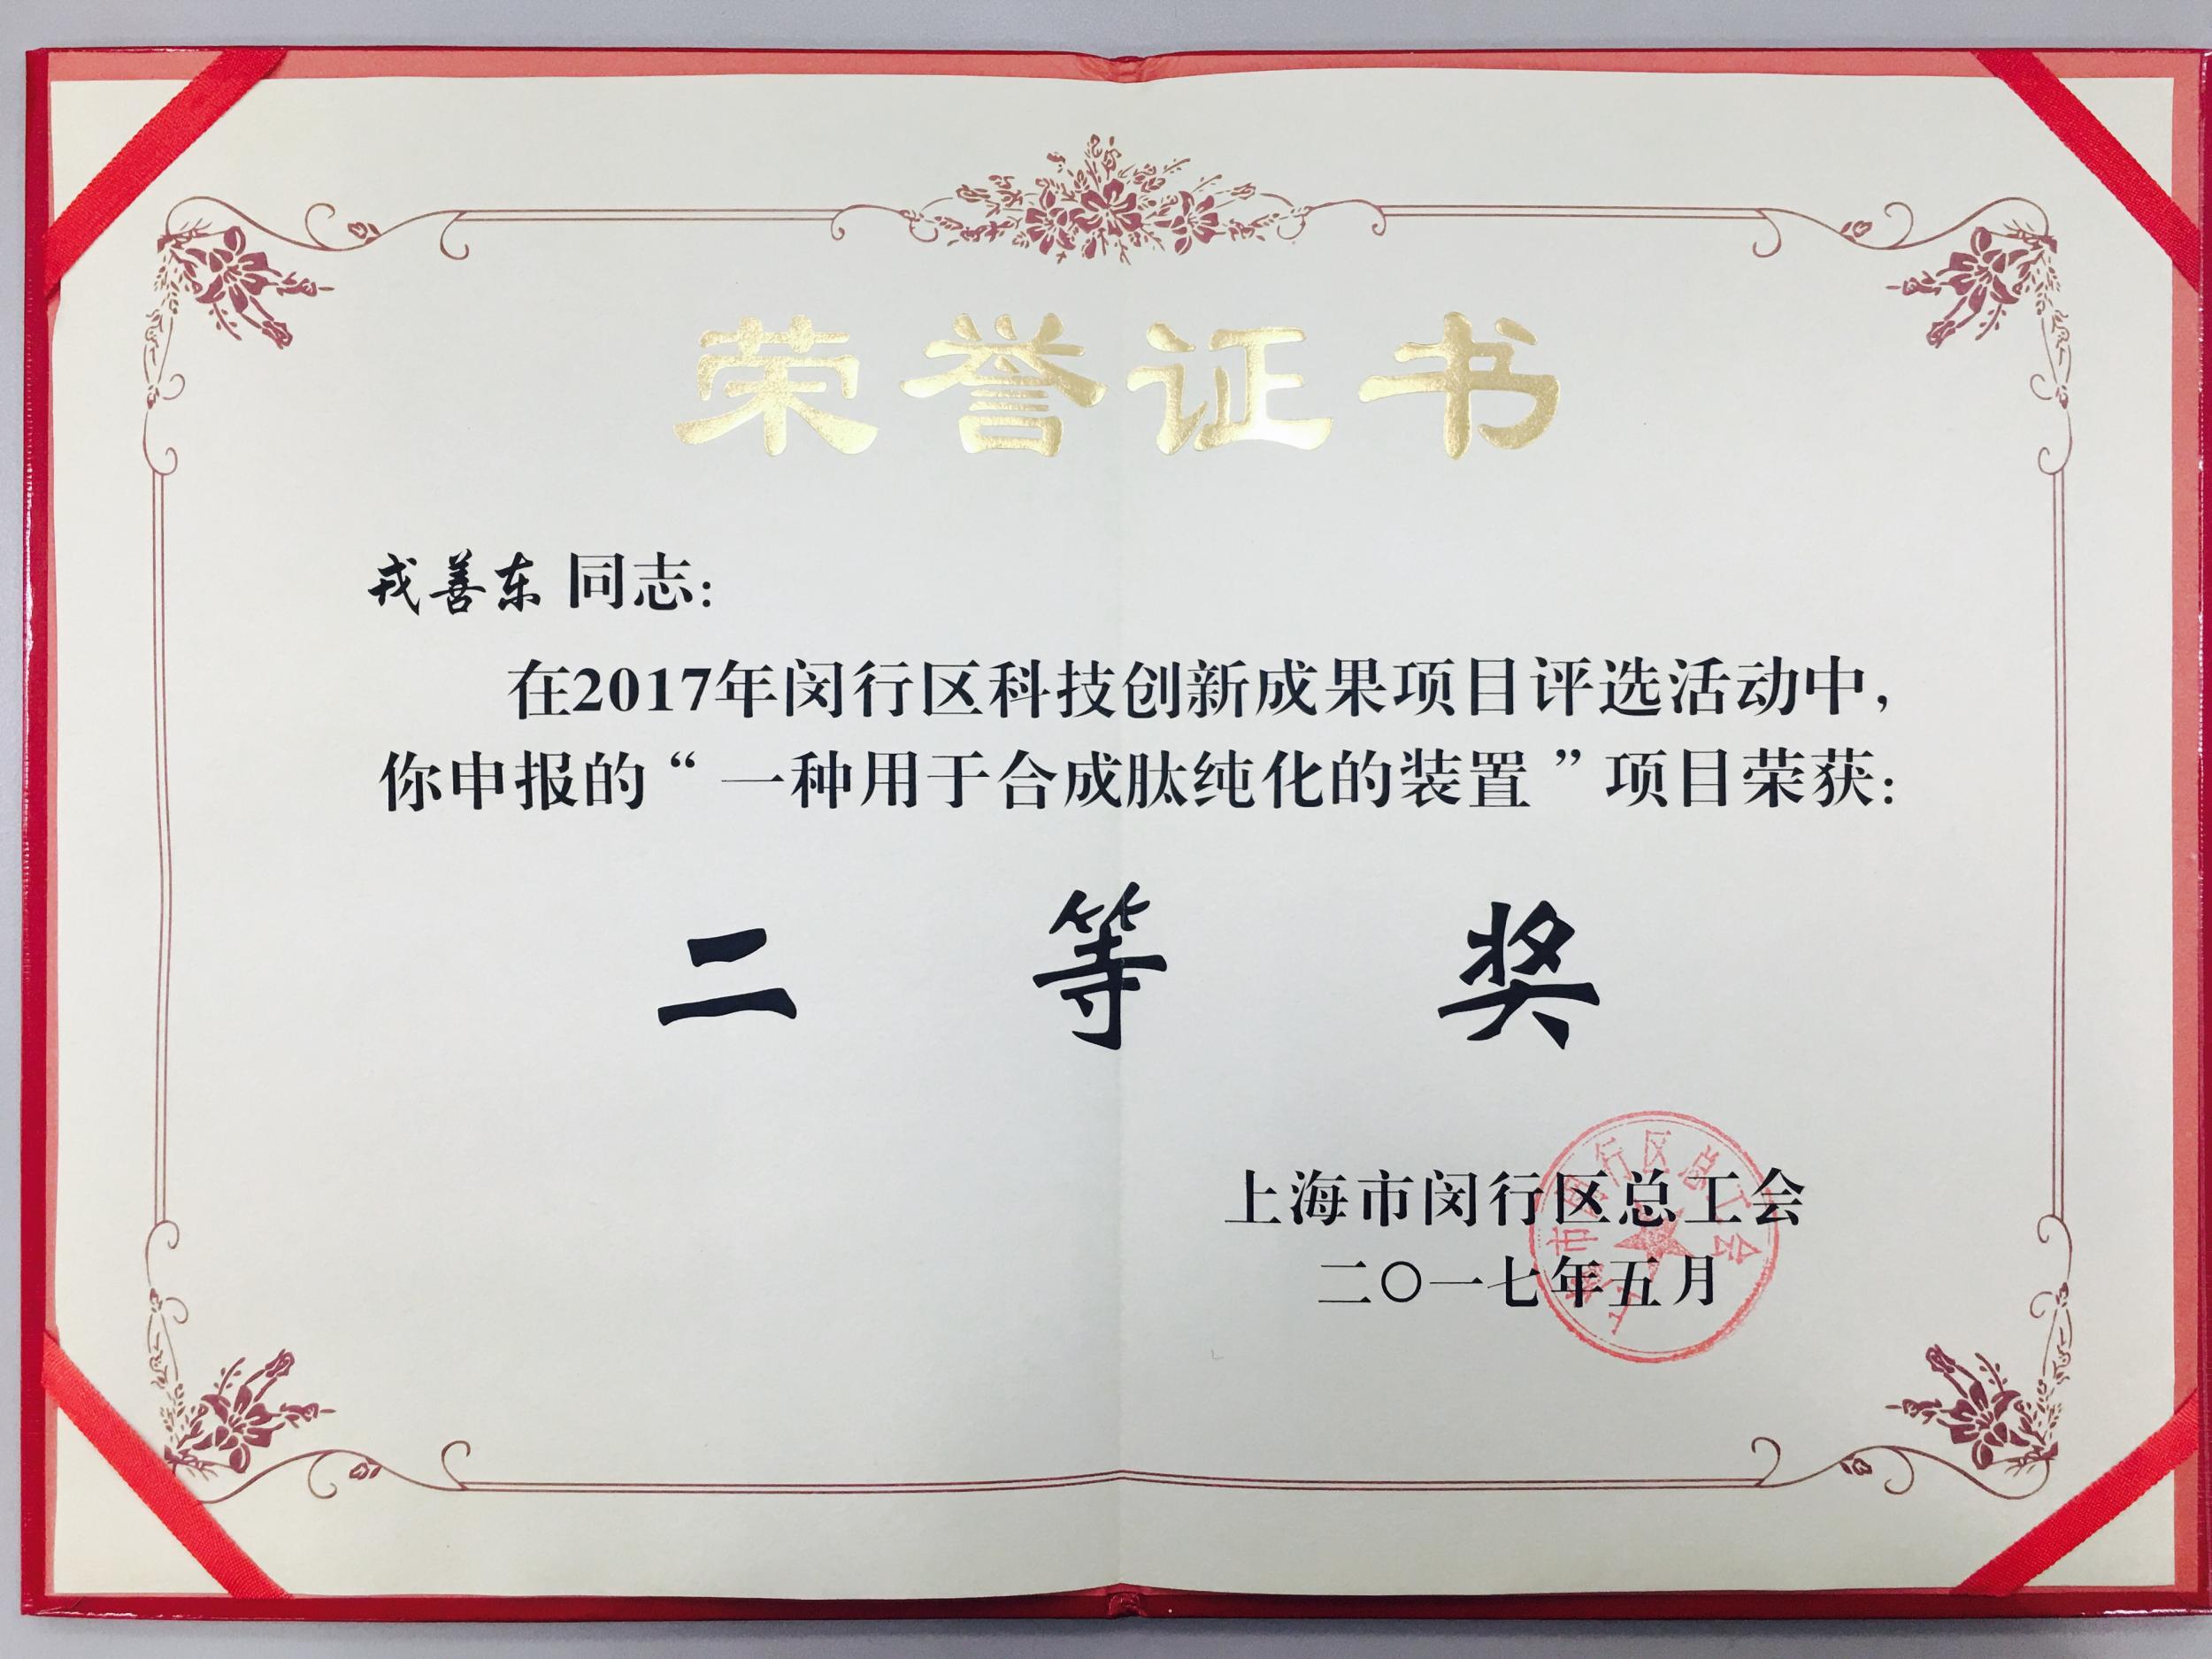 荣誉证书
戎善东 同志：
在2017年闵行区科技创新成果项目评选活动中，
你申报的“ 一种用于合成肽纯化的装置 ”项目荣获：
二 等 奖
上海市闵行区总工会
二〇一七年五月
上海市闵行区总工会